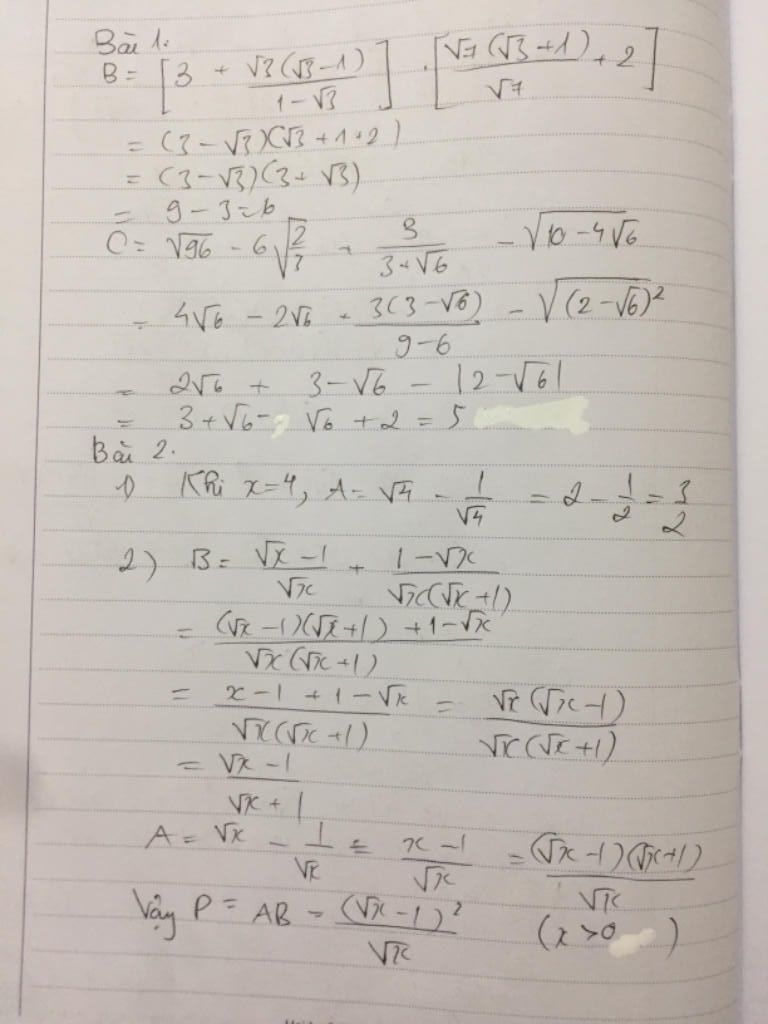 Bài 1.
B = [3 + √3(√3-1)/(1-√3)] . [√7(√3+1)/√7 + 2]
= (3-√3)(√3+1+2)
= (3-√3)(3+√3)
= 9-3=6
C = √96 - 6√(2/3) + 3/(3+√6) - √(10-4√6)
= 4√6 - 2√6 + 3(3-√6)/(9-6) - √((2-√6)²)
= 2√6 + 3-√6 - |2-√6|
= 3+√6- √6 + 2 = 5
Bài 2.
1) Khi x=4, A = √4 - 1/√4 = 2 - 1/2 = 3/2
2) B = (√x-1)/√x + (1-√x)/(√x(√x+1))
= ((√x-1)(√x+1)+1-√x)/(√x(√x+1))
= (x-1+1-√x)/(√x(√x+1)) = √x(√x-1)/(√x(√x+1))
= (√x-1)/(√x+1)
A = √x - 1/√x = (x-1)/√x = (√x-1)(√x+1)/√x
Vậy P = AB = (√x-1)²/√x (x>0 )